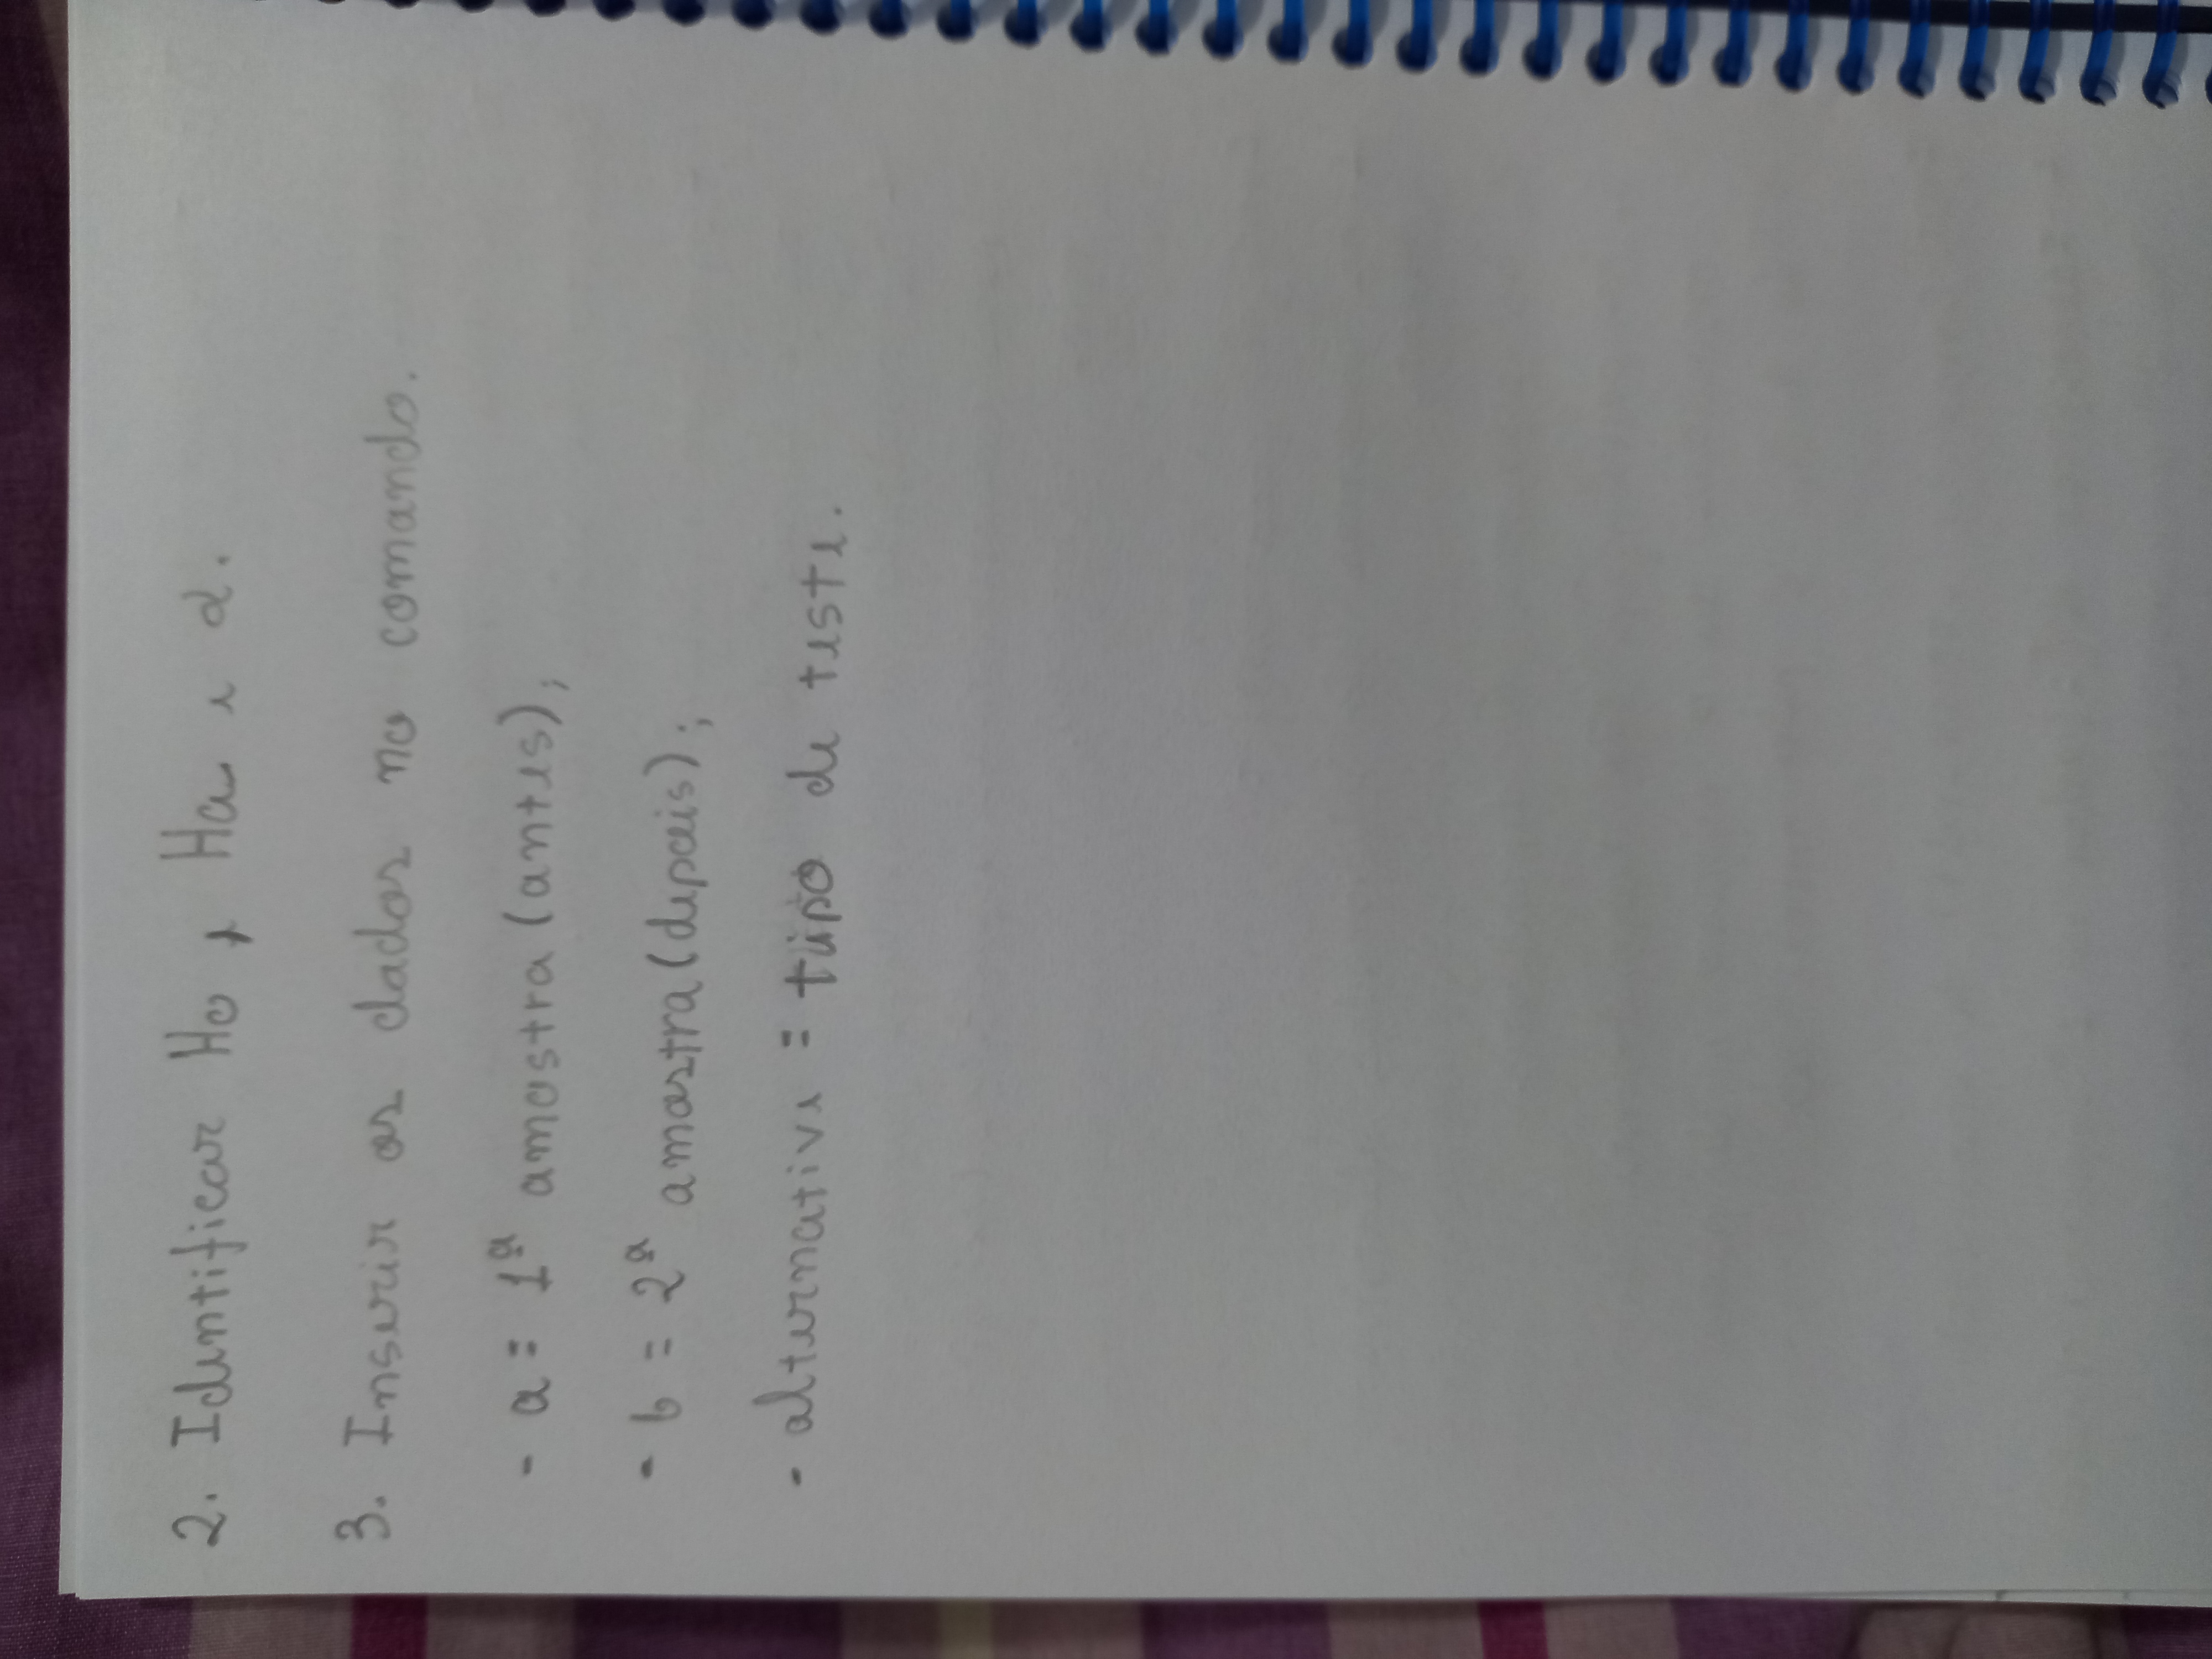 2. Identificar Ho, Ha e α.
3. Inserir os dados no comando.
- a = 1ª amostra (antes);
- b = 2ª amostra (depois);
- alternative = tipo de teste.